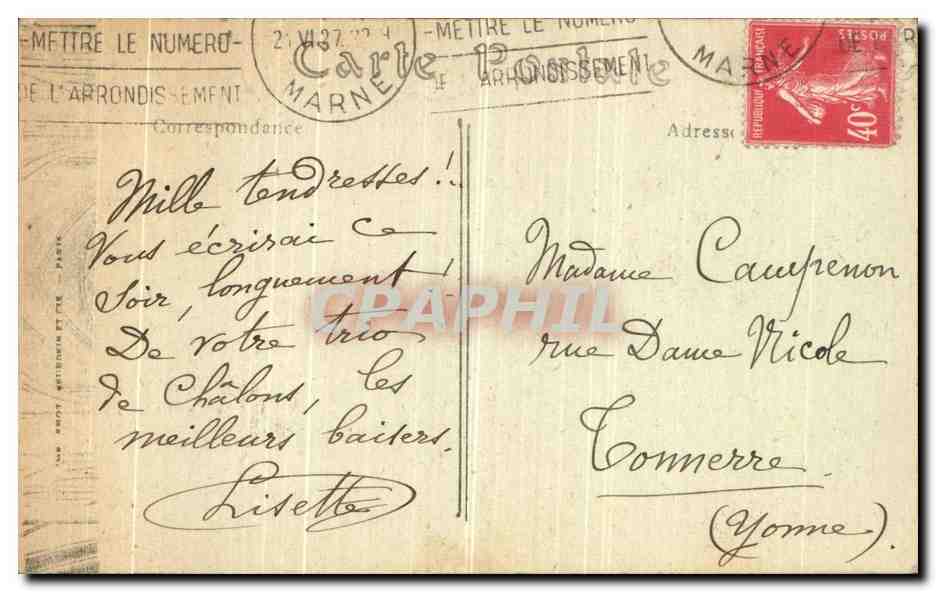 -METTRE LE NUMERO-
DE L'ARRONDISSEMENT
MARNE
-METTRE LE NUMERO
ARRONDISSEMENT
MARNE
Carte Postale
REPUBLIQUE FRANÇAISE
POSTES
40c
Correspondance
Adresse
Mille tendresses !..
Vous écrirai ce
soir, longuement !
De votre trio
de Châlons, les
meilleurs baisers.
Lisette
Madame Campenon
rue Dame Nicole
Tonnerre
(Yonne).
CPAPHIL